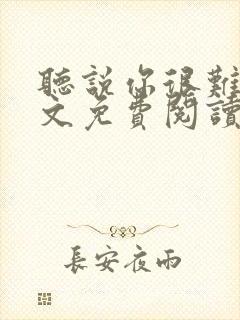 聽說你很難
文免費閱讀
長安夜雨